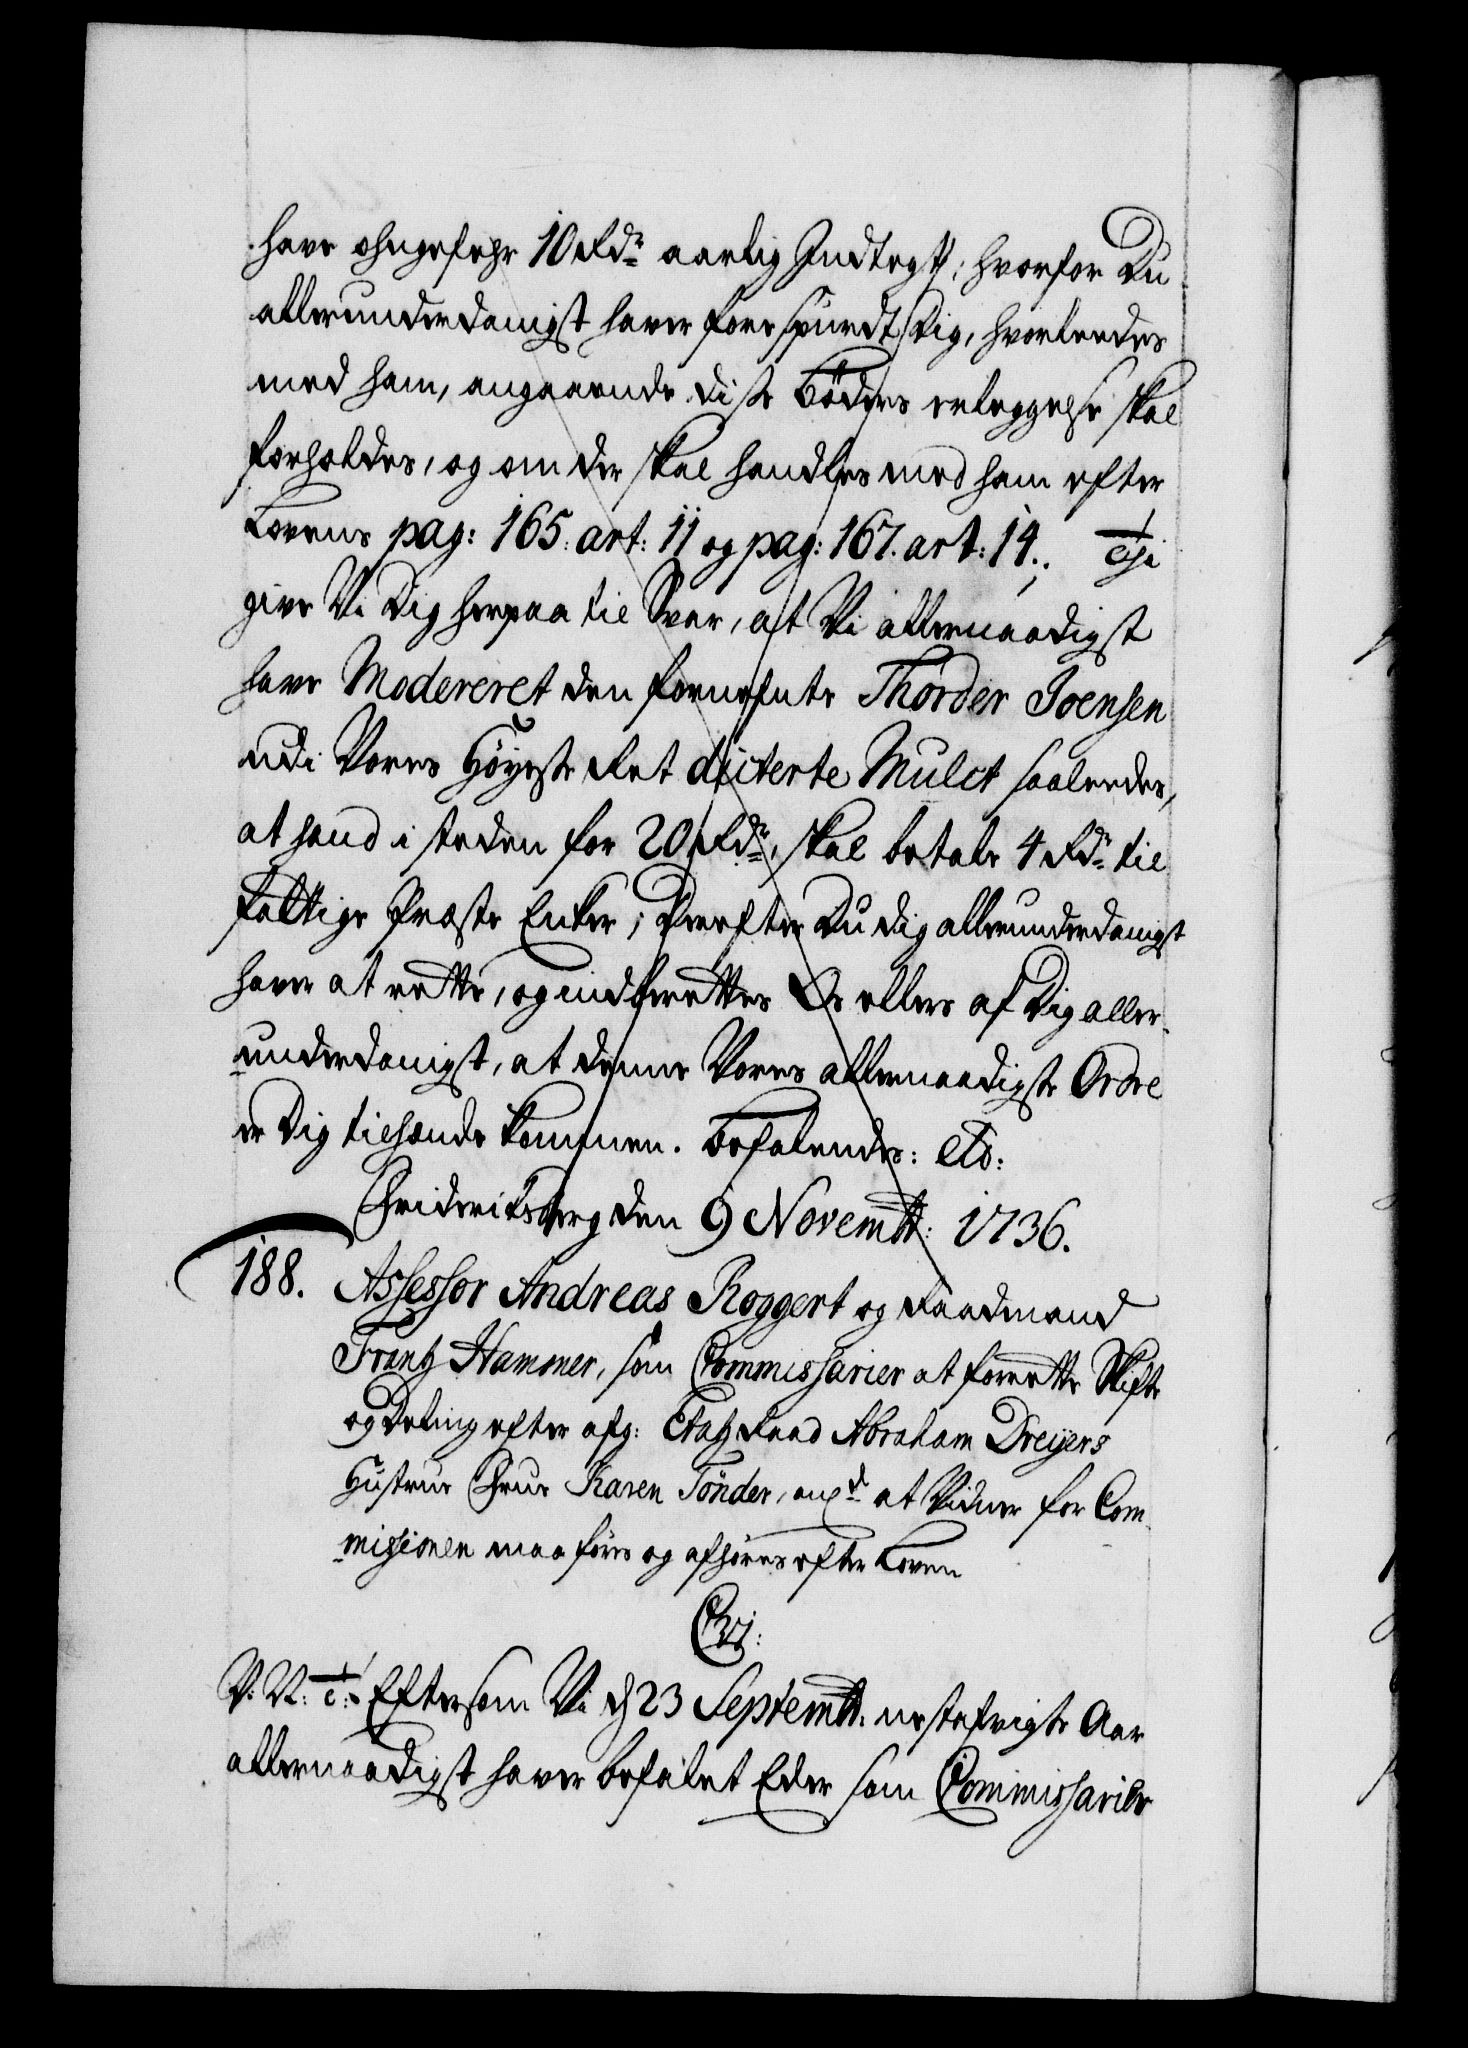 have ohngefehr 10 Rdr aarlig Indtegt; hvorfor Du
allerunderdanigst haver forespurdt Dig, hvorleedes
med ham, angaaende disse Böders erleggelse skal
forholdes, og om der skal handles med ham efter
Lovens pag: 165. art: 11 og pag: 167. art: 14.;
give Vi Dig herpaa til Svar, at Vi allernaadigst
have Modereret den fornefnte Thorder Joensen
udi Vores Höyeste Ret dicterte Mulct saaleedes,
at hand i steden for 20 Rdr, skal betale 4 Rdr til
fattige Præste Enker; Derefter Du dig allerunderdanigst
haver at rette, og indberettes Os ellers af Dig aller-
underdanigst, at denne Vores allernaadigste Ordre
er Dig tilhænde kommen. Befalendes: etc:
Friderichsberg den 9 Novembr: 1736.
188. Assessor Andreas Roggert og Raadmand
Frantz Hammer, som Commissarier at forrette Skifte
og Deling efter afg: Etatz Raad Abraham Dreyers
Hustrue Frue Karen Tönder, angd at Vidner for Com-
missionen maa föres og afhöres efter Loven
C Vj:
V: V: c: Eftersom Vi d 23 Septembr. nestafvigte Aar
allernaadigst haver befalet Eder som Commissarier